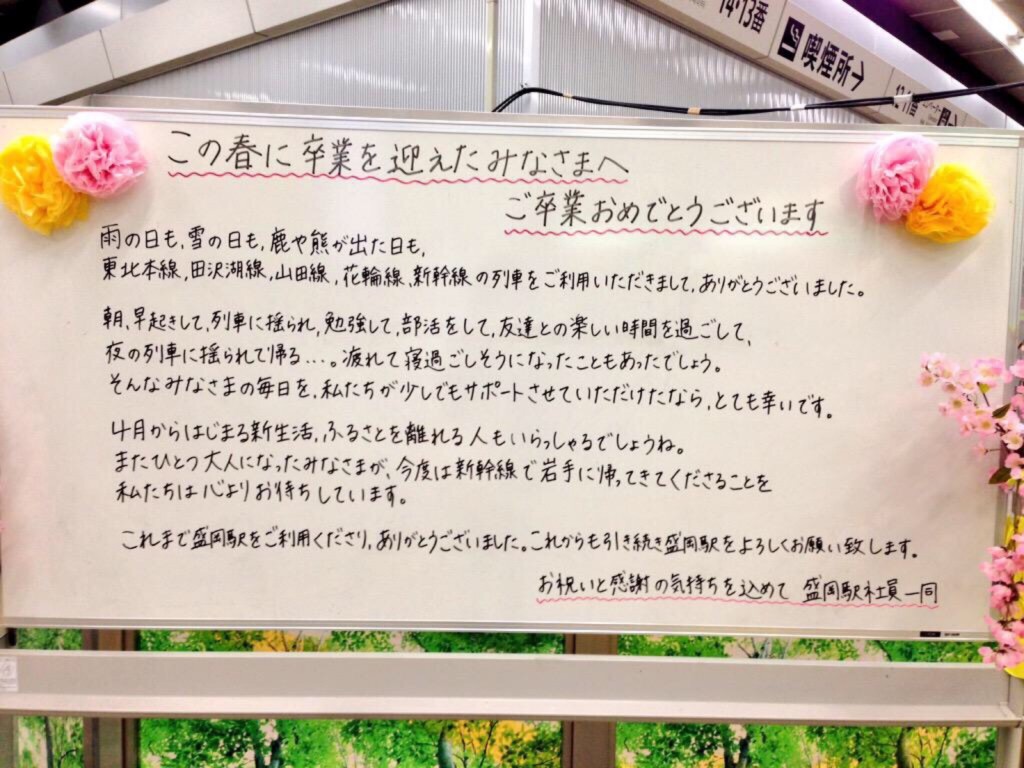 14・13番
喫煙所→
この春に卒業を迎えたみなさまへ
ご卒業おめでとうございます
雨の日も、雪の日も、鹿や熊が出た日も、
東北本線、田沢湖線、山田線、花輪線、新幹線の列車をご利用いただきまして、ありがとうございました。
朝、早起きして、列車に揺られ、勉強して、部活をして、友達との楽しい時間を過ごして、
夜の列車に揺られて帰る…。疲れて寝過ごしそうになったこともあったでしょう。
そんなみなさまの毎日を、私たちが少しでもサポートさせていただけたなら、とても幸いです。
4月からはじまる新生活、ふるさとを離れる人もいらっしゃるでしょうね。
またひとつ大人になったみなさまが、今度は新幹線で岩手に帰ってきてくださることを
私たちは心よりお待ちしています。
これまで盛岡駅をご利用くださり、ありがとうございました。これからも引き続き盛岡駅をよろしくお願い致します。
お祝いと感謝の気持ちを込めて 盛岡駅社員一同